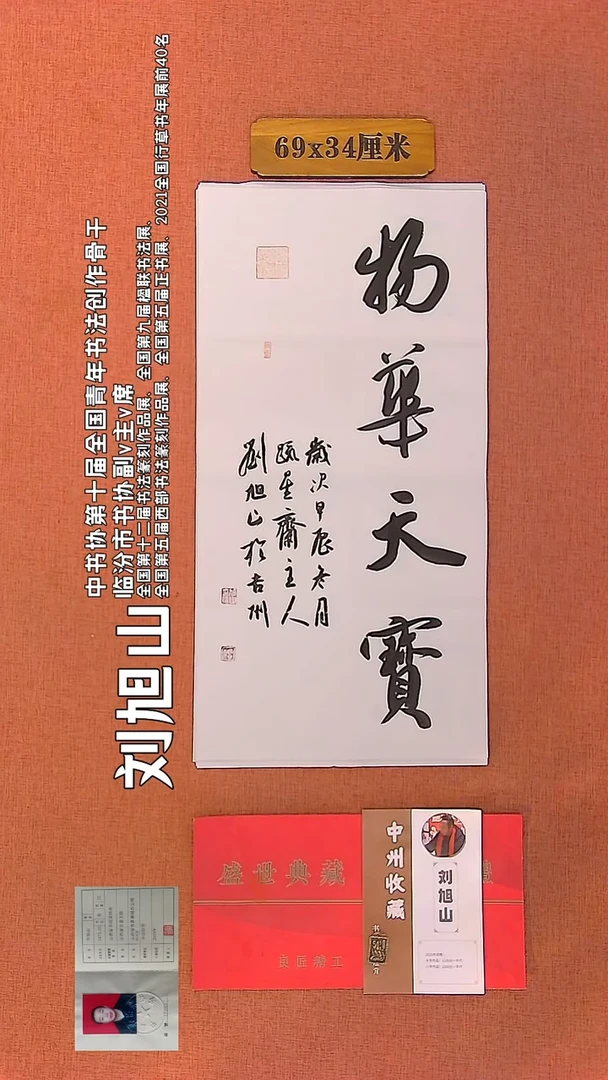 69x34厘米
物華天寳
歲次甲辰冬月
甌星齋主人
劉旭山於吉州
刘旭山
中书协第十届全国青年书法创作骨干
临汾市书协副v主v席
全国第十二届书法篆刻作品展、全国第九届楹联书法展、
全国第五届西部书法篆刻作品展、全国第五届正书展、2021全国行草书年展前40名
盛世典藏
良匠精工
中州收藏
刘旭山